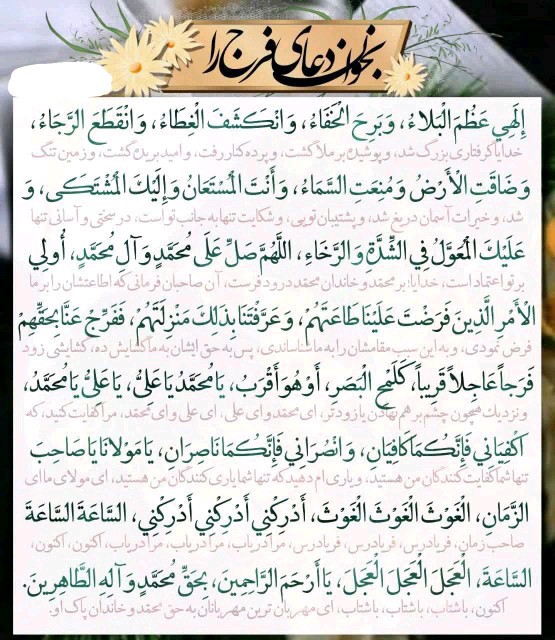 بخوان دعای فرج را
إِلَهِي عَظُمَ الْبَلاءُ، وَبَرِحَ الْخَفَاءُ، وَانْكَشَفَ الْغِطَاءُ، وَانْقَطَعَ الرَّجَاءُ،
خدایا گرفتاری بزرگ شد، و پوشیده بر ملا گشت، و پرده کنار رفت، و امید بریده گشت، و زمین تنگ
وَضَاقَتِ الْأَرْضُ وَمُنِعَتِ السَّمَاءُ، وَأَنْتَ الْمُسْتَعَانُ وَإِلَيْكَ الْمُشْتَكَى، وَ
شد، و خیرات آسمان دریغ شد، و پشتیبان تویی، و شکایت تنها به جانب تو است، در سختی و آسانی تنها
عَلَيْكَ الْمُعَوَّلُ فِي الشِّدَّةِ وَالرَّخَاءِ، اللَّهُمَّ صَلِّ عَلَى مُحَمَّدٍ وَآلِ مُحَمَّدٍ، أُولِي
بر تو اعتماد است، خدایا؛ بر محمد و خاندان محمد درود فرست، آن صاحبان فرمانی که اطاعتشان را بر ما
الْأَمْرِ الَّذِينَ فَرَضْتَ عَلَيْنَا طَاعَتَهُمْ، وَعَرَّفْتَنَا بِذَلِكَ مَنْزِلَتَهُمْ، فَفَرِّجْ عَنَّا بِحَقِّهِمْ
فرض نمودی، و به این سبب مقامشان را به ما شناساندی، پس به حق ایشان به ما گشایش ده، گشایشی زود
فَرَجاً عَاجِلاً قَرِيباً، كَلَمْحِ الْبَصَرِ، أَوْ هُوَ أَقْرَبُ، يَا مُحَمَّدُ يَا عَلِيُّ، يَا عَلِيُّ يَا مُحَمَّدُ،
و نزدیک همچون چشم بر هم نهادن یا زودتر، ای محمد و ای علی، ای علی و ای محمد، مرا کفایت کنید، که
اكْفِيَانِي فَإِنَّكُمَا كَافِيَانِ، وَانْصُرَانِي فَإِنَّكُمَا نَاصِرَانِ، يَا مَوْلانَا يَا صَاحِبَ
تنها شما کفایت کنندگان من هستید، و یاری ام دهید که تنها شما یاری کنندگان من هستید، ای مولای ما ای
الزَّمَانِ، الْغَوْثَ الْغَوْثَ الْغَوْثَ، أَدْرِكْنِي أَدْرِكْنِي أَدْرِكْنِي، السَّاعَةَ السَّاعَةَ
صاحب زمان، فریادرس، فریادرس، فریادرس، مرا دریاب، مرا دریاب، مرا دریاب، اکنون، اکنون،
السَّاعَةَ، الْعَجَلَ الْعَجَلَ الْعَجَلَ، يَا أَرْحَمَ الرَّاحِمِينَ، بِحَقِّ مُحَمَّدٍ وَآلِهِ الطَّاهِرِينَ.
اکنون، با شتاب، با شتاب، با شتاب، ای مهربان ترین مهربانان به حق محمد و خاندان پاک او.